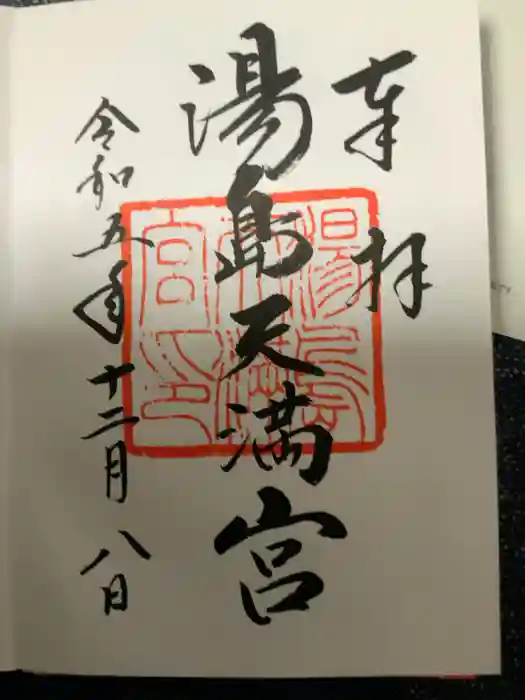 奉拝
湯島天満宮
令和五年十二月八日
湯島天満宮印